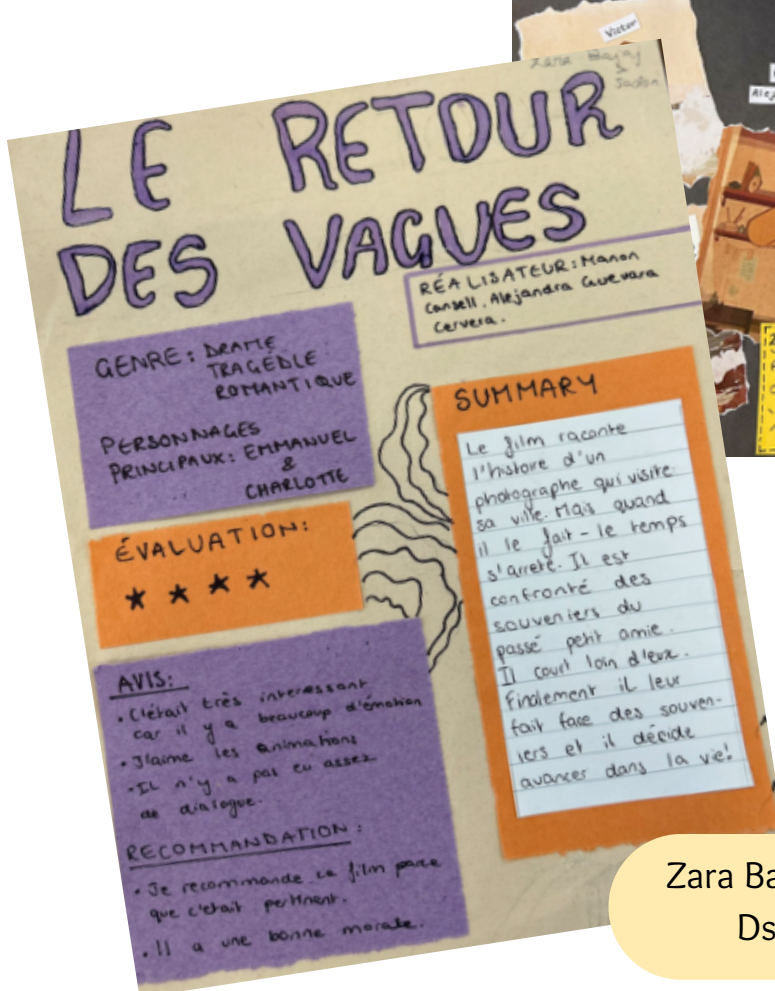 Victor
Zara Bajaj
&
LE RETOUR
DES VAGUES
RÉALISATEUR: Manon
Cansell, Alejandra Guevara
Cervera.
GENRE: DRAME
TRAGÉDIE
ROMANTIQUE
PERSONNAGES
PRINCIPAUX: EMMANUEL
&
CHARLOTTE
ÉVALUATION:
★ ★ ★ ★
AVIS:
• C'était très interessant
car il y a beaucoup d'émotion
• J'aime les animations
• IL n'y a pas eu assez
de dialogue.
RECOMMANDATION:
• Je recommande ce film parce
que c'etait pertinent.
• Il a une bonne morale.
SUMMARY
Le film raconte
l'histoire d'un
photographe qui visite
sa ville. Mais quand
il le fait - le temps
s'arrete. Il est
confronté des
souveniers du
passé petit amie.
Il court loin d'eux.
Finalement il leur
fait face des souven-
iers et il décide
avancer dans la vie!
Zara Ba
Ds